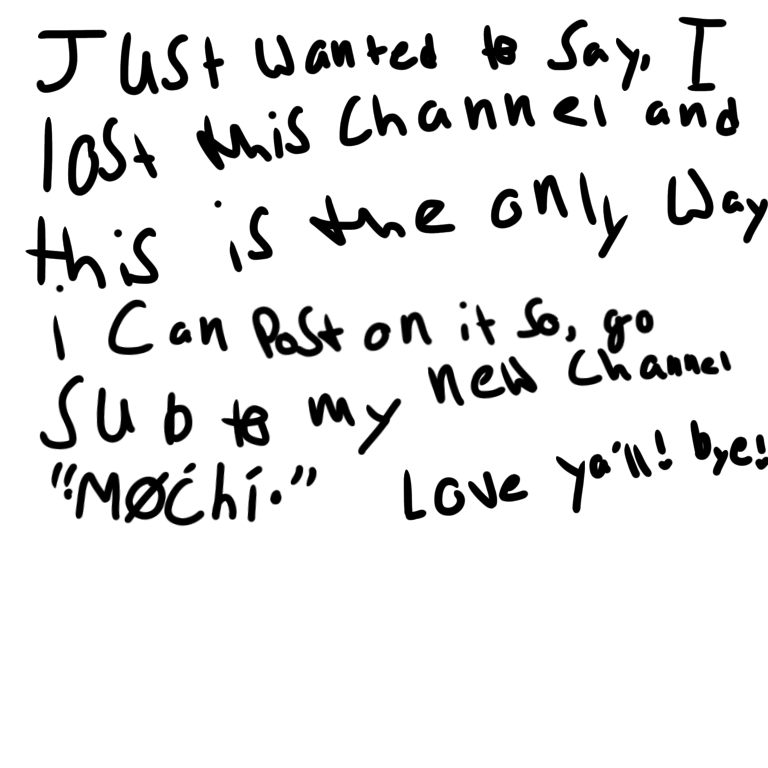 Just wanted to say, I
lost this channel and
this is the only way
i can post on it so, go
sub to my new channel
"MØćhí." Love ya'll! bye!